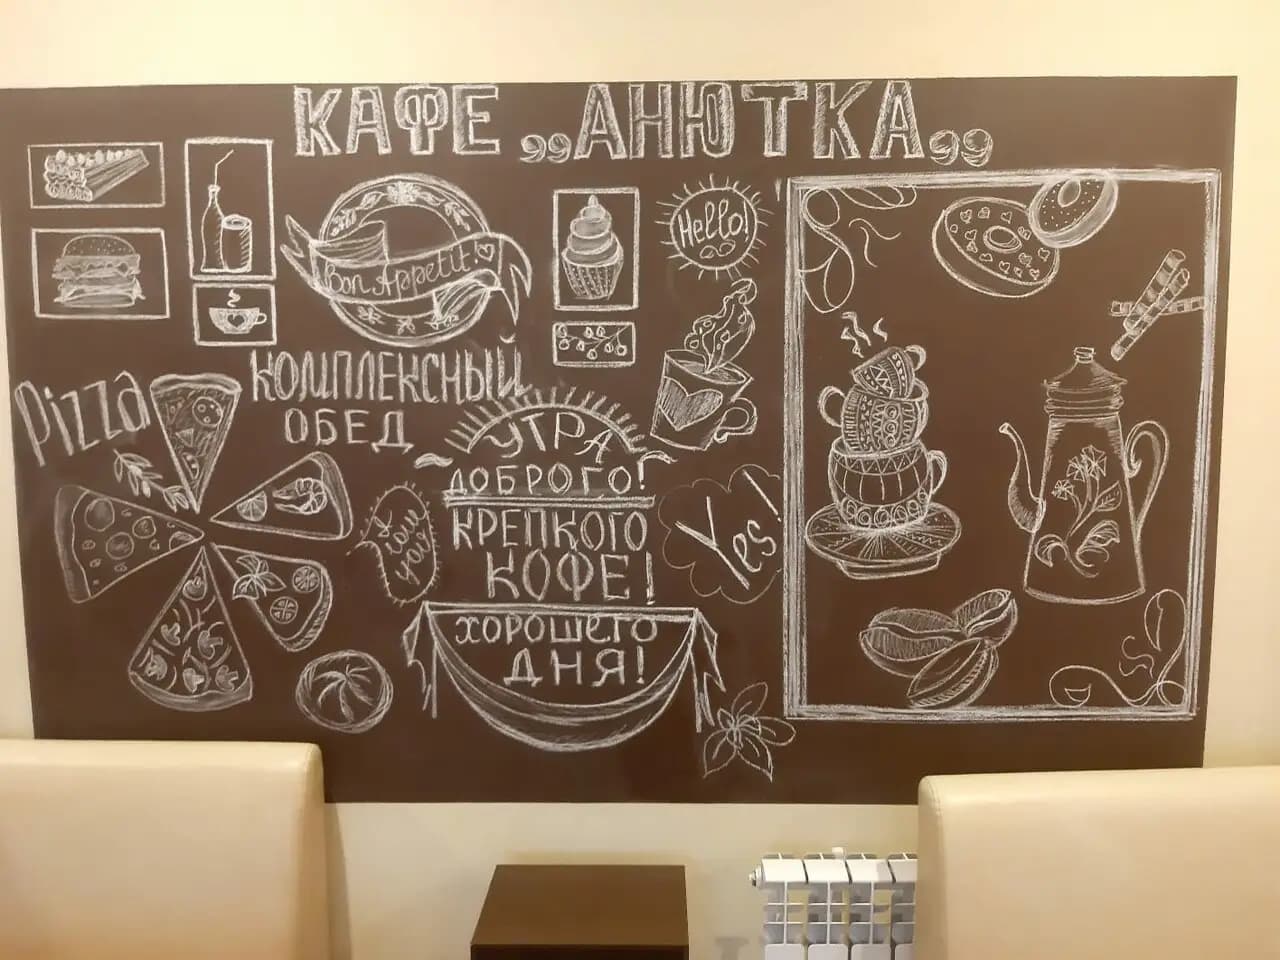 КАФЕ „АНЮТКА„
Hello!
Bon Appetit
КОМПЛЕКСНЫЙ
ОБЕД
Pizza
УТРА
ДОБРОГО!
КРЕПКОГО
КОФЕ!
ХОРОШЕГО
ДНЯ!
Yes!